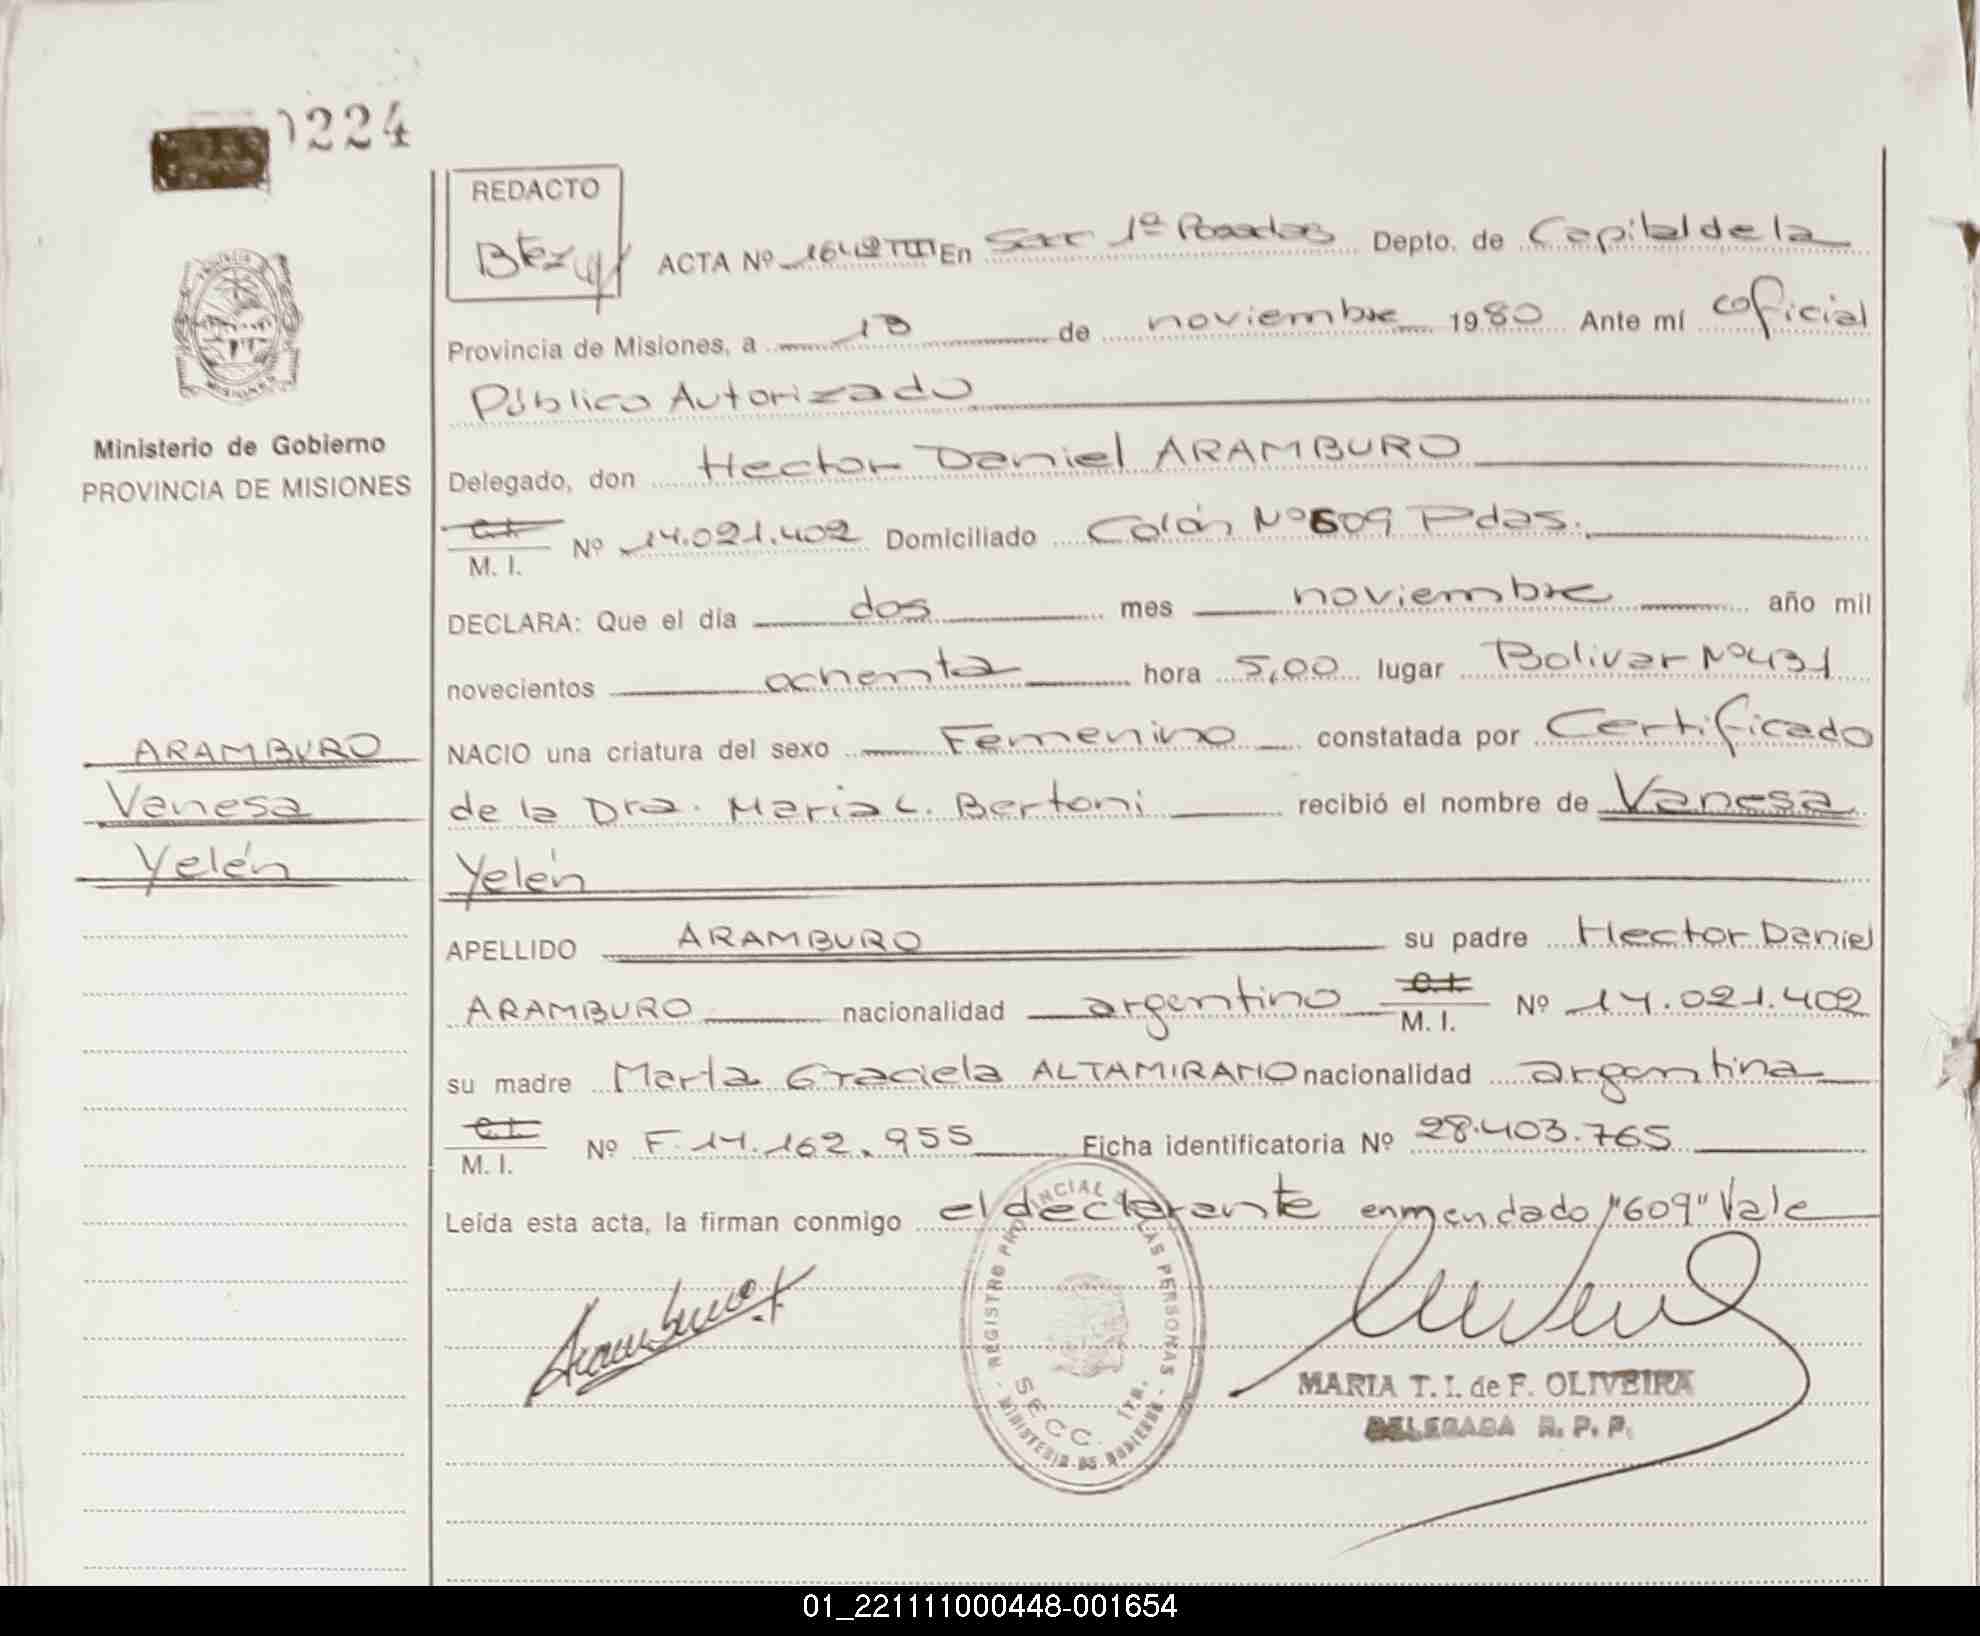 224
REDACTO
ACTA Nº 1642 TIII En Secc 1ª Posadas Depto. de Capital de la
Provincia de Misiones, a 13 de noviembre 1980 Ante mí oficial
Público Autorizado
Delegado, don Hector Daniel ARAMBURO
C.I.
M. I. Nº 14.021.402 Domiciliado Colón Nº 609 Pdas.
DECLARA: Que el día dos mes noviembre año mil
novecientos ochenta hora 5,00 lugar Bolivar Nº 431
NACIO una criatura del sexo Femenino constatada por Certificado
de la Dra. Maria L. Bertoni recibió el nombre de Vanesa
Yelén
APELLIDO ARAMBURO su padre Hector Daniel
ARAMBURO nacionalidad argentino C.I. M. I. Nº 14.021.402
su madre Marta Graciela ALTAMIRANO nacionalidad argentina
C.I.
M. I. Nº F. 14.162.955 Ficha identificatoria Nº 28.403.765
Leída esta acta, la firman conmigo el declarante enmendado "609" Vale
Ministerio de Gobierno
PROVINCIA DE MISIONES
ARAMBURO
Vanesa
Yelén
MISIONES
Aramburo
REGISTRO PROVINCIAL DE LAS PERSONAS
SECC. 1ra.
MINISTERIO DE GOBIERNO
MARIA T. I. de F. OLIVEIRA
DELEGADA R. P. P.
01_221111000448-001654